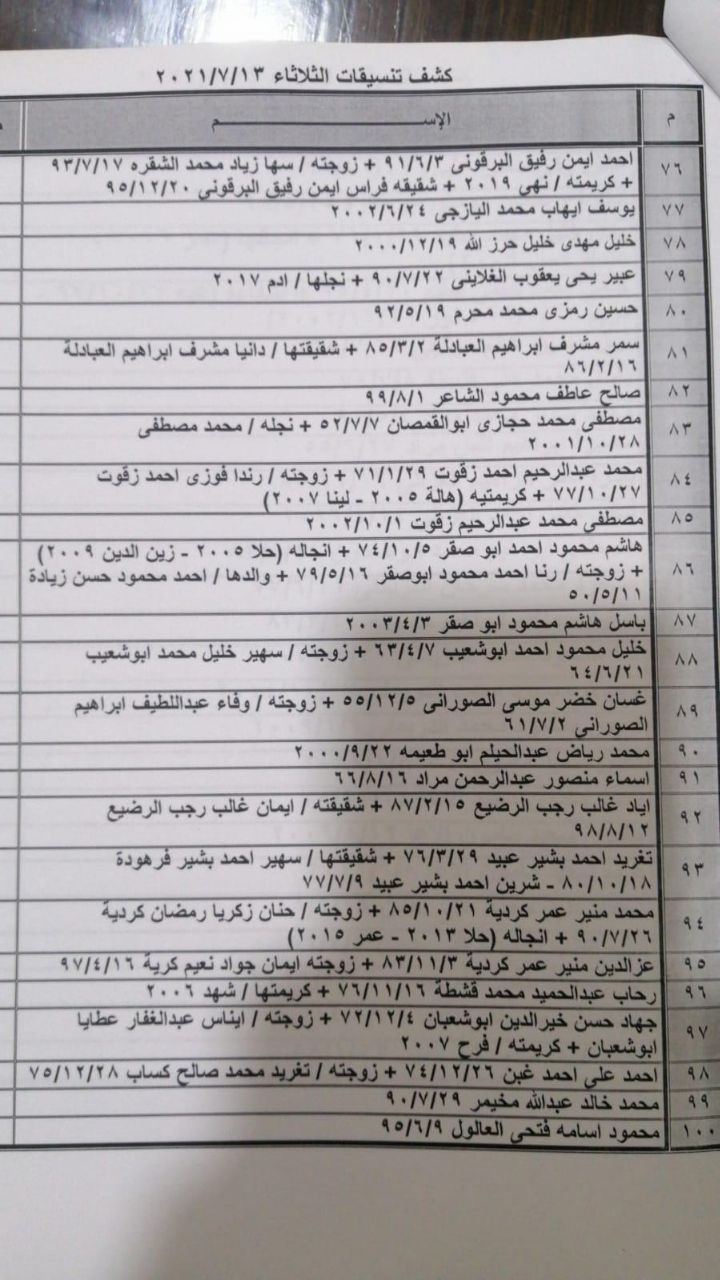 كشف تنسيقات الثلاثاء ٢٠٢١/٧/١٣
م
الإســـم
٧٦
احمد ايمن رفيق البرقونى ٩١/٦/٣ + زوجته / سها زياد محمد الشقره ٩٣/٧/١٧
+ كريمته / نهي ٢٠١٩ + شقيقه فراس ايمن رفيق البرقوني ٩٥/١٢/٢٠
٧٧
يوسف ايهاب محمد اليازجى ٢٠٠٢/٦/٢٤
٧٨
خليل مهدى خليل حرز الله ٢٠٠٠/١٢/١٩
٧٩
عبير يحى يعقوب الغلاينى ٩٠/٧/٢٢ + نجلها / ادم ٢٠١٧
٨٠
حسين رمزى محمد محرم ٩٢/٥/١٩
٨١
سمر مشرف ابراهيم العبادلة ٨٥/٣/٢ + شقيقتها / دانيا مشرف ابراهيم العبادلة
٨٦/٢/١٦
٨٢
صالح عاطف محمود الشاعر ٩٩/٨/١
٨٣
مصطفى محمد حجازى ابوالقمصان ٥٢/٧/٧ + نجله / محمد مصطفى
٢٠٠١/١٠/٢٨
٨٤
محمد عبدالرحيم احمد زقوت ٧١/١/٢٩ + زوجته / رندا فوزى احمد زقوت
٧٧/١٠/٢٧ + كريمتيه (هالة ٢٠٠٥ - لينا ٢٠٠٧)
٨٥
مصطفى محمد عبدالرحيم زقوت ٢٠٠٢/١٠/١
٨٦
هاشم محمود احمد ابو صقر ٧٤/١٠/٥ + انجاله (حلا ٢٠٠٥ - زين الدين ٢٠٠٩)
+ زوجته / رنا احمد محمود ابوصقر ٧٩/٥/١٦ + والدها / احمد محمود حسن زيادة
٥٠/٥/١١
٨٧
باسل هاشم محمود ابو صقر ٢٠٠٣/٤/٣
٨٨
خليل محمود احمد ابوشعيب ٦٣/٤/٧ + زوجته / سهير خليل محمد ابوشعيب
٦٤/٦/٢١
٨٩
غسان خضر موسى الصورانى ٥٥/١٢/٥ + زوجته / وفاء عبداللطيف ابراهيم
الصورانى ٦١/٧/٢
٩٠
محمد رياض عبدالحيلم ابو طعيمه ٢٠٠٠/٩/٢٢
٩١
اسماء منصور عبدالرحمن مراد ٦٦/٨/١٦
٩٢
اياد غالب رجب الرضيع ٨٧/٢/١٥ + شقيقته / ايمان غالب رجب الرضيع
٩٨/٨/١٢
٩٣
تغريد احمد بشير عبيد ٧٦/٣/٢٩ + شقيقتها / سهير احمد بشير فرهودة
٨٠/١٠/١٨ - شرين احمد بشير عبيد ٧٧/٧/٩
٩٤
محمد منير عمر كردية ٨٥/١٠/٢١ + زوجته / حنان زكريا رمضان كردية
٩٠/٧/٢٦ + انجاله (حلا ٢٠١٣ - عمر ٢٠١٥)
٩٥
عزالدين منير عمر كردية ٨٣/١١/٣ + زوجته ايمان جواد نعيم كرية ٩٧/٤/١٦
٩٦
رحاب عبدالحميد محمد قشطة ٧٦/١١/١٦ + كريمتها / شهد ٢٠٠٦
٩٧
جهاد حسن خيرالدين ابوشعبان ٧٢/١٢/٤ + زوجته / ايناس عبدالغفار عطايا
ابوشعبان + كريمته / فرح ٢٠٠٧
٩٨
احمد على احمد غبن ٧٤/١٢/٢٦ + زوجته / تغريد محمد صالح كساب ٧٥/١٢/٢٨
٩٩
محمد خالد عبدالله مخيمر ٩٠/٧/٢٩
١٠٠
محمود اسامه فتحى العالول ٩٥/٦/٩